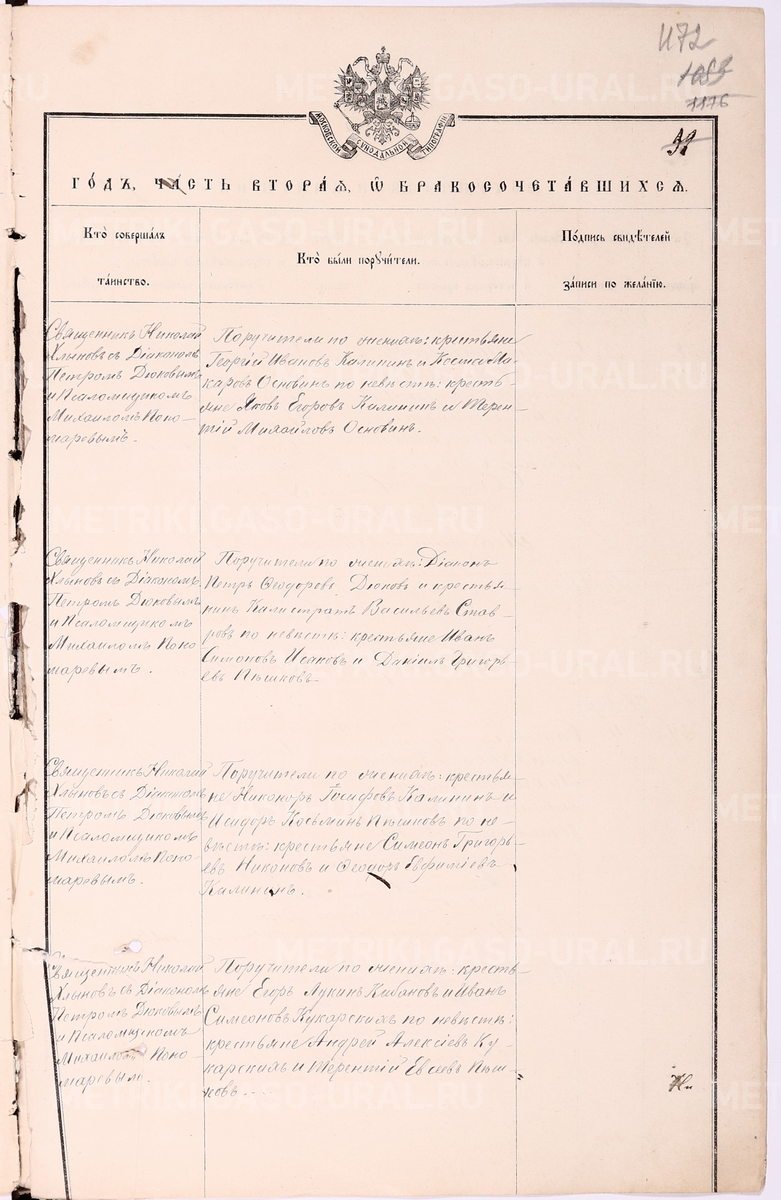 1172
1083
1176
МОСКОВСКОЙ СѴНОДАЛЬНОЙ ТИПОГРАФІИ
31
ГОДЪ, ЧАСТЬ ВТОРАЯ, Ѿ БРАКОСОЧЕТАВШИХСЯ.
Кто совершалъ
таинство.
Кто были поручители.
Подпись свидѣтелей
записи по желанію.
Священникъ Николай
Хлыновъ съ Діакономъ
Петромъ Дюковымъ
и Псаломщикомъ
Михаиломъ Поно-
маревымъ.
Поручители по женихѣ: крестьяне
Георгій Ивановъ Калининъ и Косма Ма-
каровъ Основинъ по невѣстѣ: кресть-
яне Яковъ Егоровъ Калининъ и Терен-
тій Михайловъ Основинъ.
Священникъ Николай
Хлыновъ съ Діакономъ
Петромъ Дюковымъ
и Псаломщикомъ
Михаиломъ Поно
маревымъ.
Поручители по женихѣ: Діаконъ
Петръ Ѳеодоровъ Дюковъ и крестья
нинъ Калистратъ Васильевъ Став-
ровъ по невѣстѣ: крестьяне Иванъ
Симоновъ Исаковъ и Даніилъ Григорь
евъ Пѣшковъ
Священникъ Николай
Хлыновъ съ Діакономъ
Петромъ Дюковымъ
и Псаломщикомъ
Михаиломъ Поно-
маревымъ.
Поручители по женихѣ: крестья-
не Никоноръ Іосифовъ Калининъ и
Исидоръ Косьминъ Пѣшковъ по не-
вѣстѣ: крестьяне Симеонъ Григорь-
евъ Никоновъ и Ѳеодоръ Евфиміевъ
Калининъ.
Священникъ Николай
Хлыновъ съ Діакономъ
Петромъ Дюковымъ
и Псаломщикомъ
Михаиломъ Поно
маревымъ.
Поручители по женихѣ: кресть-
яне Егоръ Лукинъ Кабановъ и Иванъ
Симеоновъ Кукарскихъ по невѣстѣ:
крестьяне Андрей Алексіевъ Ку-
карскихъ и Терентій Евсеевъ Пѣш-
ковъ.
METRIKI.GASO-URAL.RU